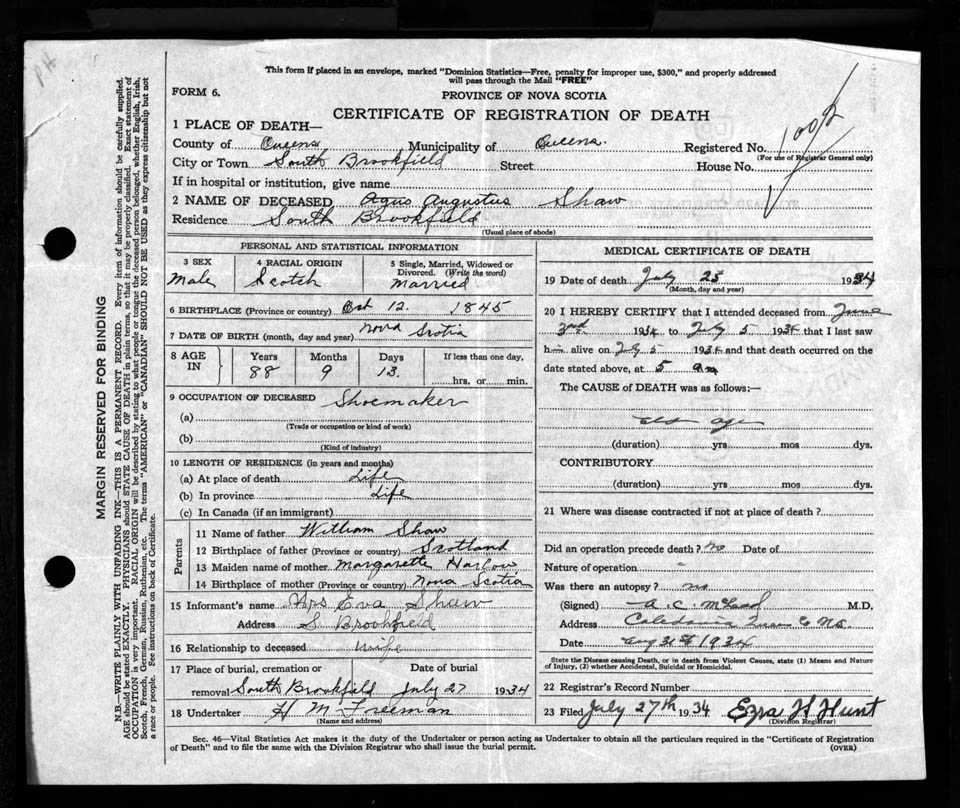 This form if placed in an envelope, marked "Dominion Statistics—Free, penalty for improper use, $300," and properly addressed
will pass through the Mail "FREE"
FORM 6.
PROVINCE OF NOVA SCOTIA
CERTIFICATE OF REGISTRATION OF DEATH
1 PLACE OF DEATH—
County of Queens Municipality of Queens. Registered No.
(For use of Registrar General only)
City or Town South Brookfield Street House No.
If in hospital or institution, give name
2 NAME OF DECEASED Agus Augustus Shaw
Residence South Brookfield
(Usual place of abode)
PERSONAL AND STATISTICAL INFORMATION
3 SEX 4 RACIAL ORIGIN 5 Single, Married, Widowed or
Divorced. (Write the word)
Male Scotch Married
6 BIRTHPLACE (Province or country) Oct 12. 1845
7 DATE OF BIRTH (month, day and year) Nova Scotia
8 AGE IN Years Months Days If less than one day,
88 9 13. hrs. or min.
9 OCCUPATION OF DECEASED Shoemaker
(a)
(Trade or occupation or kind of work)
(b)
(Kind of industry)
10 LENGTH OF RESIDENCE (in years and months)
(a) At place of death Life
(b) In province Life
(c) In Canada (if an immigrant)
Parents
11 Name of father William Shaw
12 Birthplace of father (Province or country) Scotland
13 Maiden name of mother Margarette Harlow
14 Birthplace of mother (Province or country) Nova Scotia
15 Informant's name Mrs Eva Shaw
Address S Brookfield
16 Relationship to deceased wife
17 Place of burial, cremation or Date of burial
removal South Brookfield July 27 1934
18 Undertaker H M Freeman
(Name and address)
MEDICAL CERTIFICATE OF DEATH
19 Date of death July 25 1934
(Month, day and year)
20 I HEREBY CERTIFY that I attended deceased from June
3rd 1934 to July 5 1934 that I last saw
h alive on July 5 1934 and that death occurred on the
date stated above, at 5 am
The CAUSE of DEATH was as follows:—
old age
(duration) yrs mos dys.
CONTRIBUTORY
(duration) yrs mos dys.
21 Where was disease contracted if not at place of death?
Did an operation precede death? no Date of
Nature of operation
Was there an autopsy? no
(Signed) A. C. M.D.
Address Caledonia Queens Co NS.
Date Aug 31st 1934
State the Disease causing Death, or in death from Violent Causes, state (1) Means and Nature
of Injury, (2) whether Accidental, Suicidal or Homicidal.
22 Registrar's Record Number
23 Filed July 27th 1934 Ezra H Hunt
(Division Registrar)
Sec. 46—Vital Statistics Act makes it the duty of the Undertaker or person acting as Undertaker to obtain all the particulars required in the "Certificate of Registration
of Death" and to file the same with the Division Registrar who shall issue the burial permit.
(OVER)
MARGIN RESERVED FOR BINDING
N.B.—WRITE PLAINLY WITH UNFADING INK—THIS IS A PERMANENT RECORD. Every item of information should be carefully supplied.
AGE should be stated EXACTLY. PHYSICIANS should STATE CAUSE OF DEATH in plain terms, so that it may be properly classified. Exact statement of
OCCUPATION is very important. RACIAL ORIGIN will be described by stating to what people or tongue the deceased person belonged, whether English, Irish,
Scotch, French, German, Russian, Ruthenian, etc. The terms "AMERICAN" or "CANADIAN" SHOULD NOT BE USED as they express citizenship but not
a race or people. See instructions on back of Certificate.